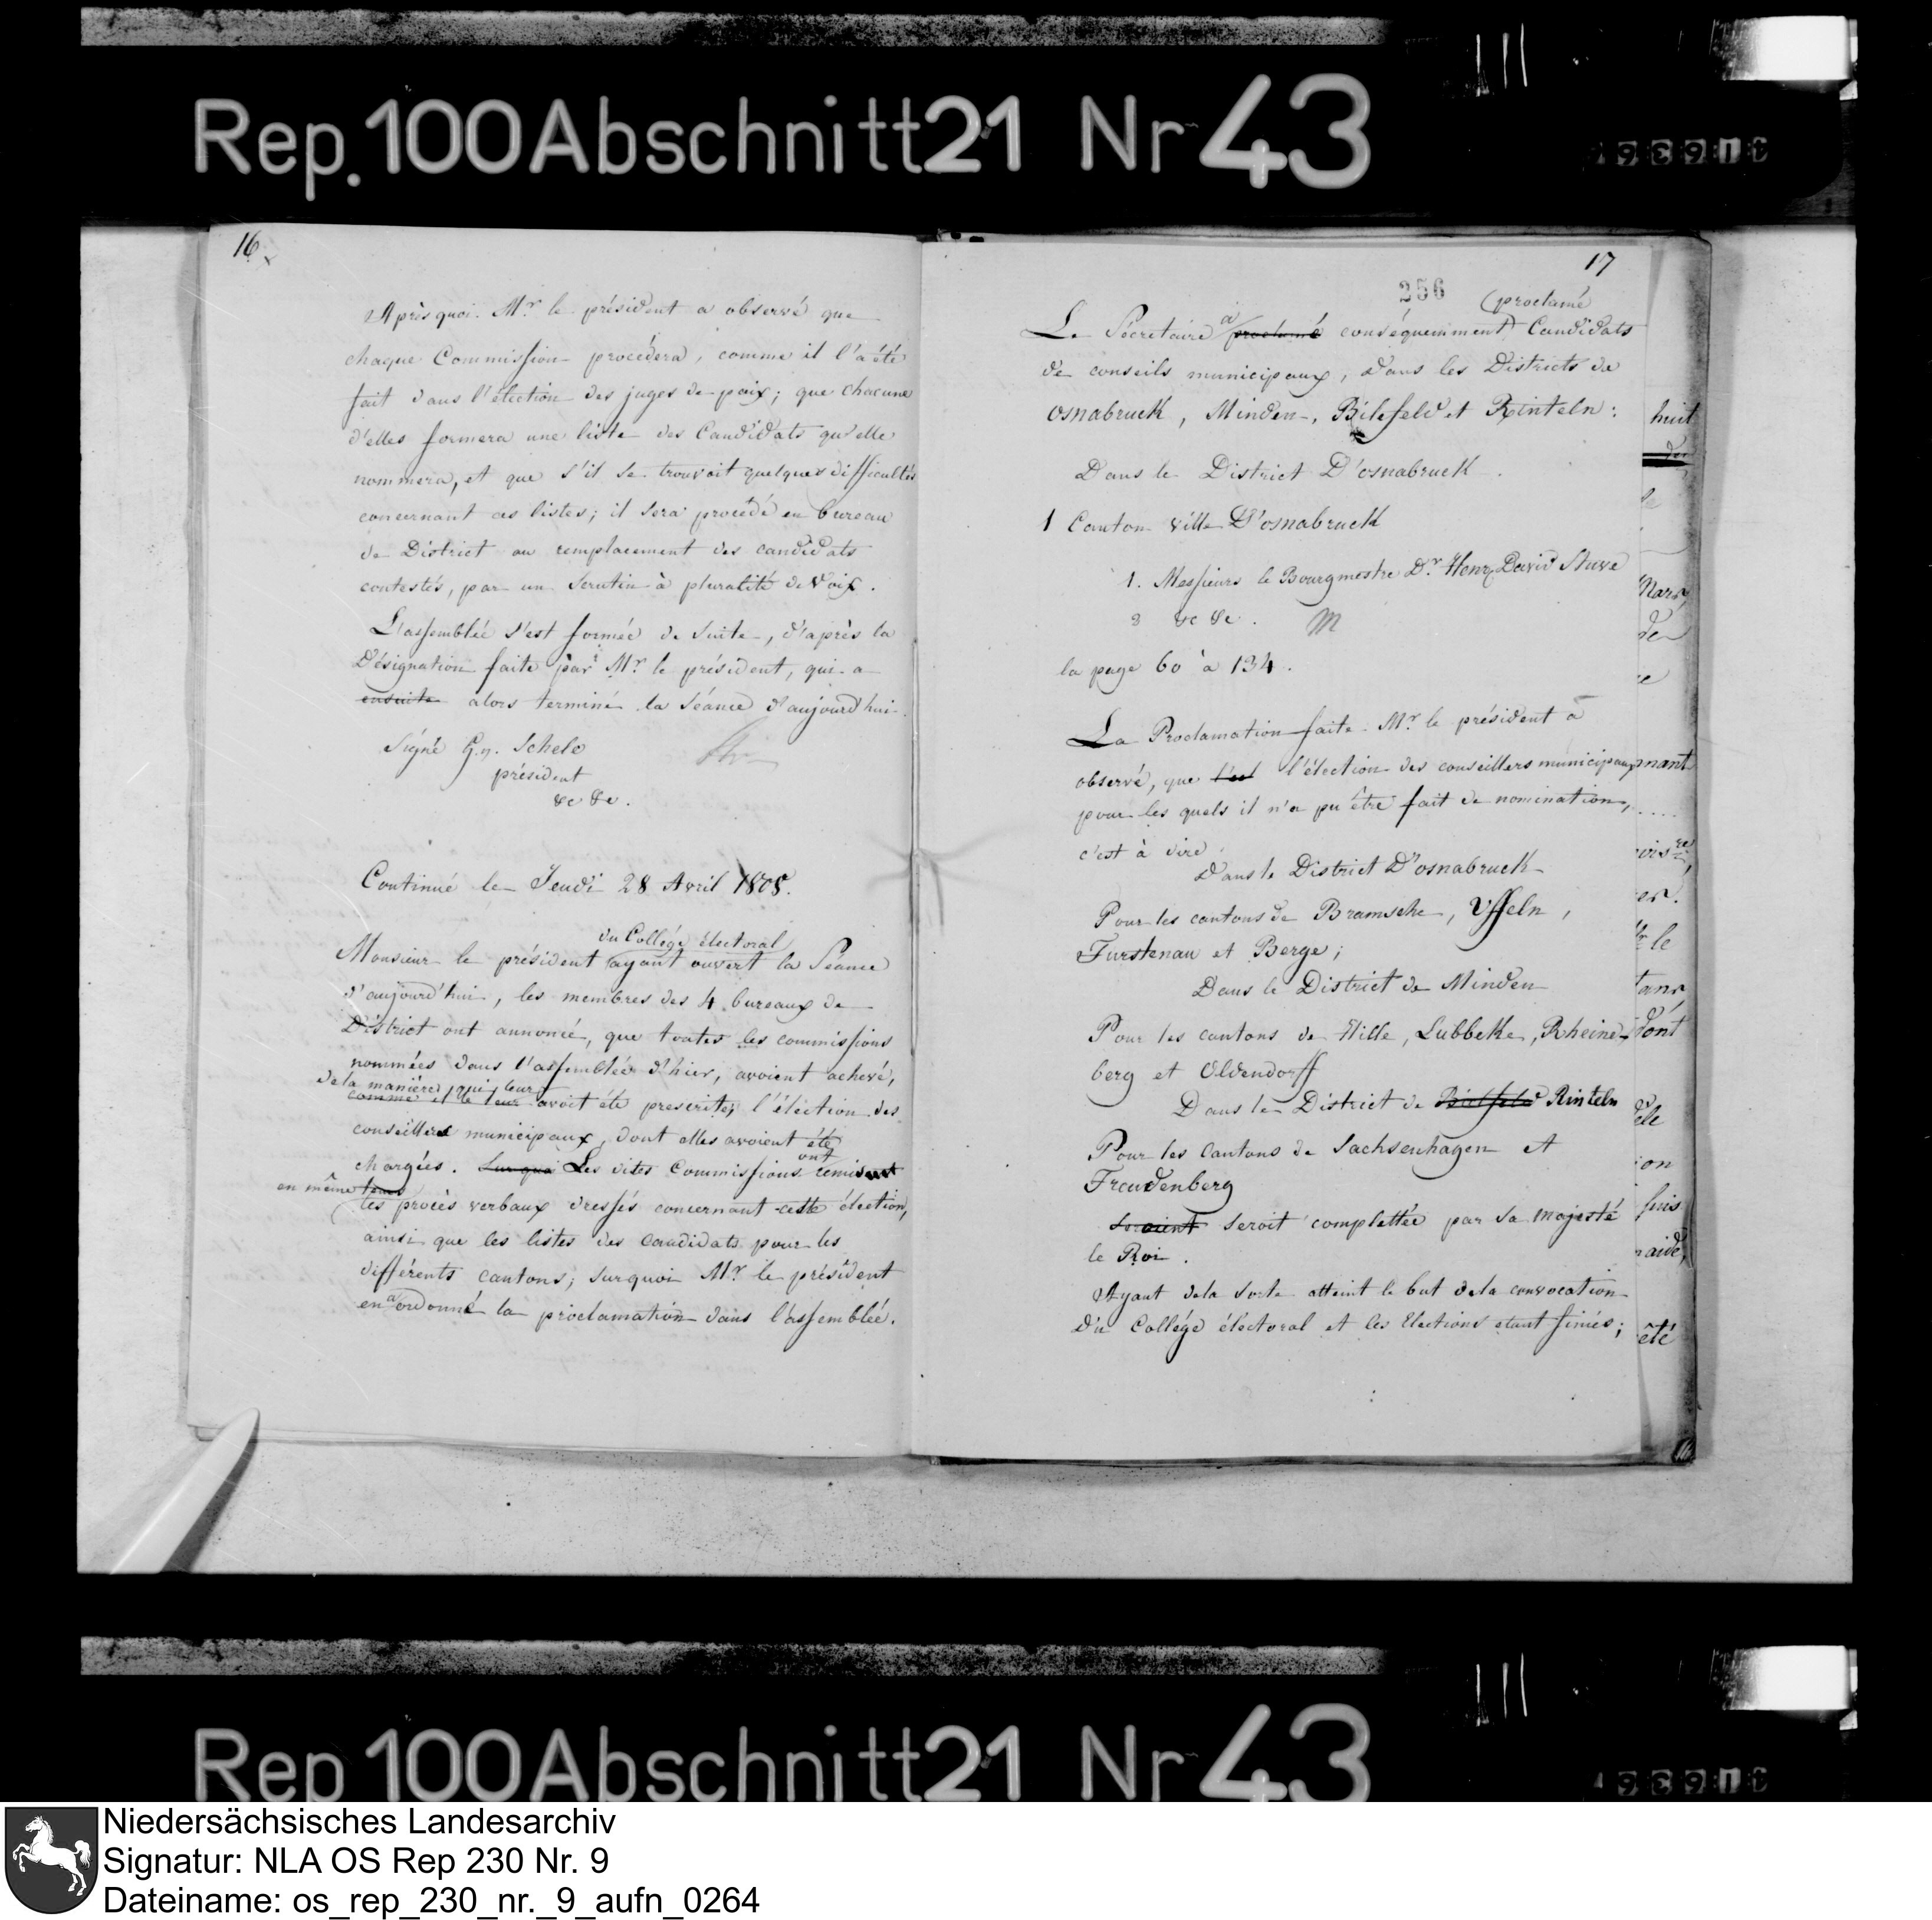 Rep. 100 Abschnitt 21 Nr 43
316396
16
Après quoi Mr le président a observé que
chaque Commission procédera, comme il l'a été
fait dans l'élection des juges de paix; que chacune
d'elles formera une liste des Candidats qu'elle
nommera, et que s'il se trouvoit quelques difficultés
concernant ces listes; il sera procédé en bureau
de District au remplacement des candidats
contestés, par un Scrutin à pluralité de Voix.
L'assemblée s'est formée de suite, d'après la
Désignation faite par Mr le président, qui a
ensuite alors terminé la Séance d'aujourd'hui.
Signé G. Schele
président
&c &c.
Continué le Jeudi 28 Avril 1808.
du Collége électoral
Monsieur le président ayant ouvert la Séance
d'aujourd'hui, les membres des 4 bureaux de
District ont annoncé, que toutes les commissions
nommées dans l'assemblée d'hier, avoient achevé,
de la manière, qui leur
comme il le leur avoit été prescrite, l'élection des
conseillers municipaux, dont elles avoient été
chargées. Sur quoi Les dites Commissions ont remis
en même tems
les procès verbaux dressés concernant cette élection,
ainsi que les listes des Candidats pour les
différents cantons; surquoi Mr le président
en a ordonné la proclamation dans l'assemblée.
17
256
(proclamé
Le Sécretaire a proclamé conséquemment Candidats
de conseils municipaux, dans les Districts de
Osnabruck, Minden, Bilefeld et Rinteln:
Dans le District D'osnabruck.
1 Canton ville D'osnabruck
1. Messieurs le Bourgmestre Dr. Henr. David Stuve
2 &c &c.
la page 60 à 134.
La Proclamation faite Mr. le président a
observé, que l'élection des conseillers municipaux
pour les quels il n'a pu être fait de nomination,
c'est à dire
Dans le District D'osnabruck
Pour les cantons de Bramsche, Uffeln,
Furstenau et Berge;
Dans le District de Minden
Pour les cantons de Hille, Lubbeke, Rheine-
berg et Oldendorff
Dans le District de Bielfeld Rinteln
Pour les Cantons de Sachsenhagen et
Freudenberg
Seroient seroit complettée par Sa Majesté
le Roi.
Ayant de la sorte atteint le but de la convocation
Du Collége électoral et les Elections etant finies;
huit
de
nant
le
dont
ion
aide,
été
Rep 100 Abschnitt 21 Nr 43
316396
Niedersächsisches Landesarchiv
Signatur: NLA OS Rep 230 Nr. 9
Dateiname: os_rep_230_nr._9_aufn_0264